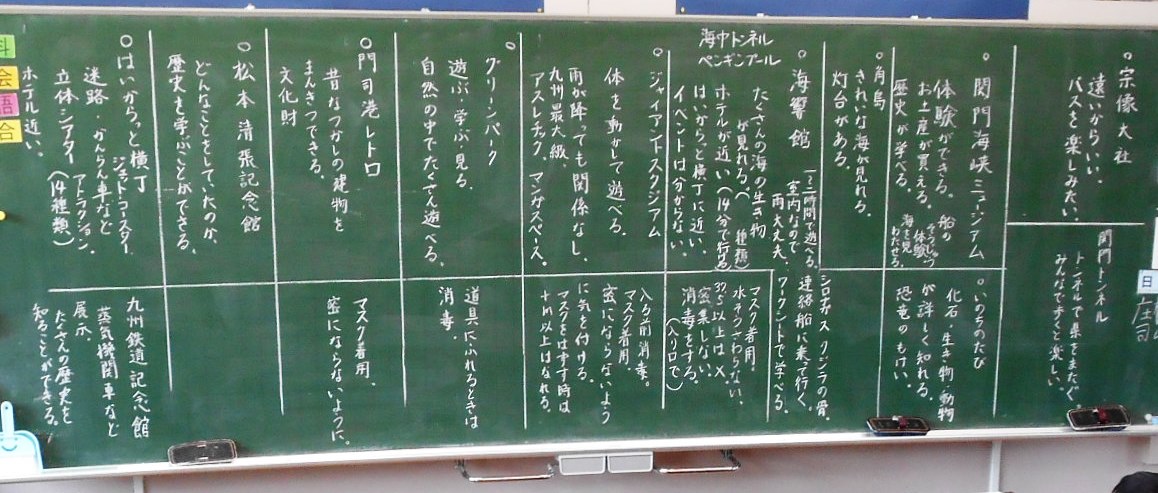 ○宗像大社
遠いからいい、
バスを楽しみたい。
関門トンネル
トンネルで県をまたぐ。
みんなで歩くと楽しい。
○関門海峡ミュージアム
体験ができる。船の
そうじゅう
体験
海を見
わたせる。
お土産が買える。
歴史が学べる。
○いのちのたび
化石・生き物・動物
が詳しく知れる。
恐竜のもけい。
○角島
きれいな海が見れる。
灯台がある。
海中トンネル
ペンギンプール
○海響館
1〜2時間で遊べる。
室内なので
雨大丈夫
たくさんの海の生き物
が見れる。(　種類)
ホテルが近い(14分で行ける)
はいからっと横丁に近い。
イベントは分からない。
シロナガス クジラの骨。
連絡船に乗って行く。
マスク着用。
水そうさわらない。
37.5以上は×
密集しない。
消毒をする。
(入り口で)
○ジャイアントスタジアム
体を動かして遊べる。
雨が降っても関係なし。
九州最大級
アスレチック、マンガスペース。
入る前消毒。
マスク着用。
密にならないよう
に気を付ける。
マスクをはずす時は
1m以上はなれる。
○グリーンパーク
遊ぶ・学ぶ・見る。
自然の中でたくさん遊べる。
道具にふれるときは
消毒。
○門司港レトロ
昔なつかしの建物を
まんきつできる。
文化財
マスク着用、
密にならないように。
○松本清張記念館
どんなことをしていたのか、
歴史を学ぶことができる。
○はいからっと横丁
ジェットコースター
迷路・かんらん車など
アトラクション。
立体シアター(14種類)
ホテル近い。
九州鉄道記念館
蒸気機関車など
展示。
たくさんの歴史を
知ることができる。
科
会
語
合
日